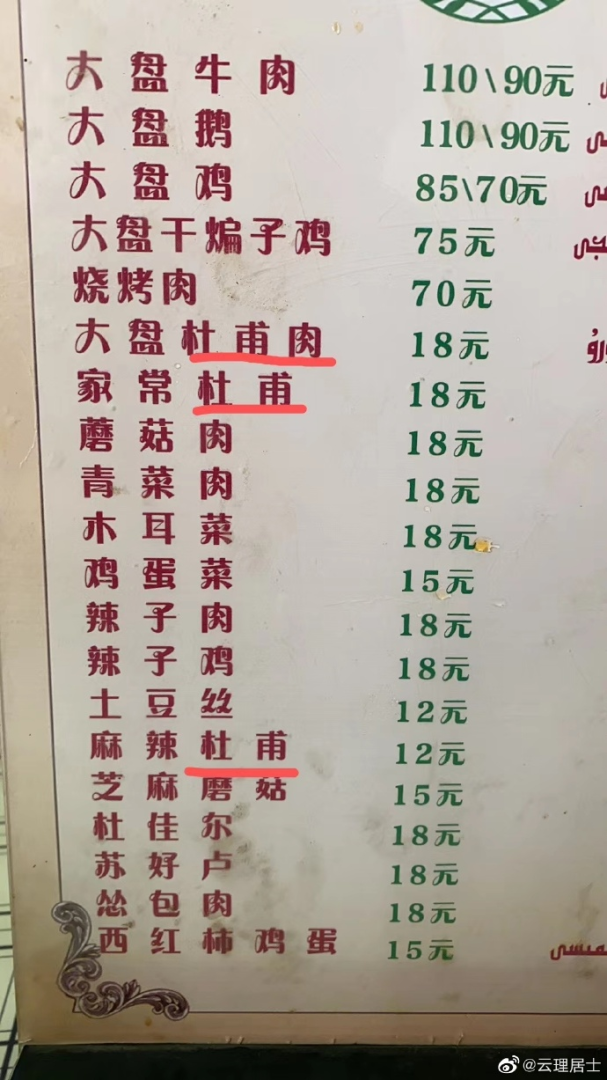 大盘牛肉 110\90元
大盘鹅 110\90元
大盘鸡 85\70元
大盘干煸子鸡 75元
烧烤肉 70元
大盘杜甫肉 18元
家常杜甫 18元
蘑菇肉 18元
青菜肉 18元
木耳菜 18元
鸡蛋菜 15元
辣子肉 18元
辣子鸡 18元
土豆丝 12元
麻辣杜甫 12元
芝麻磨菇 15元
杜佳尔 18元
苏好卢 18元
怂包肉 18元
西红柿鸡蛋 15元
@云理居士